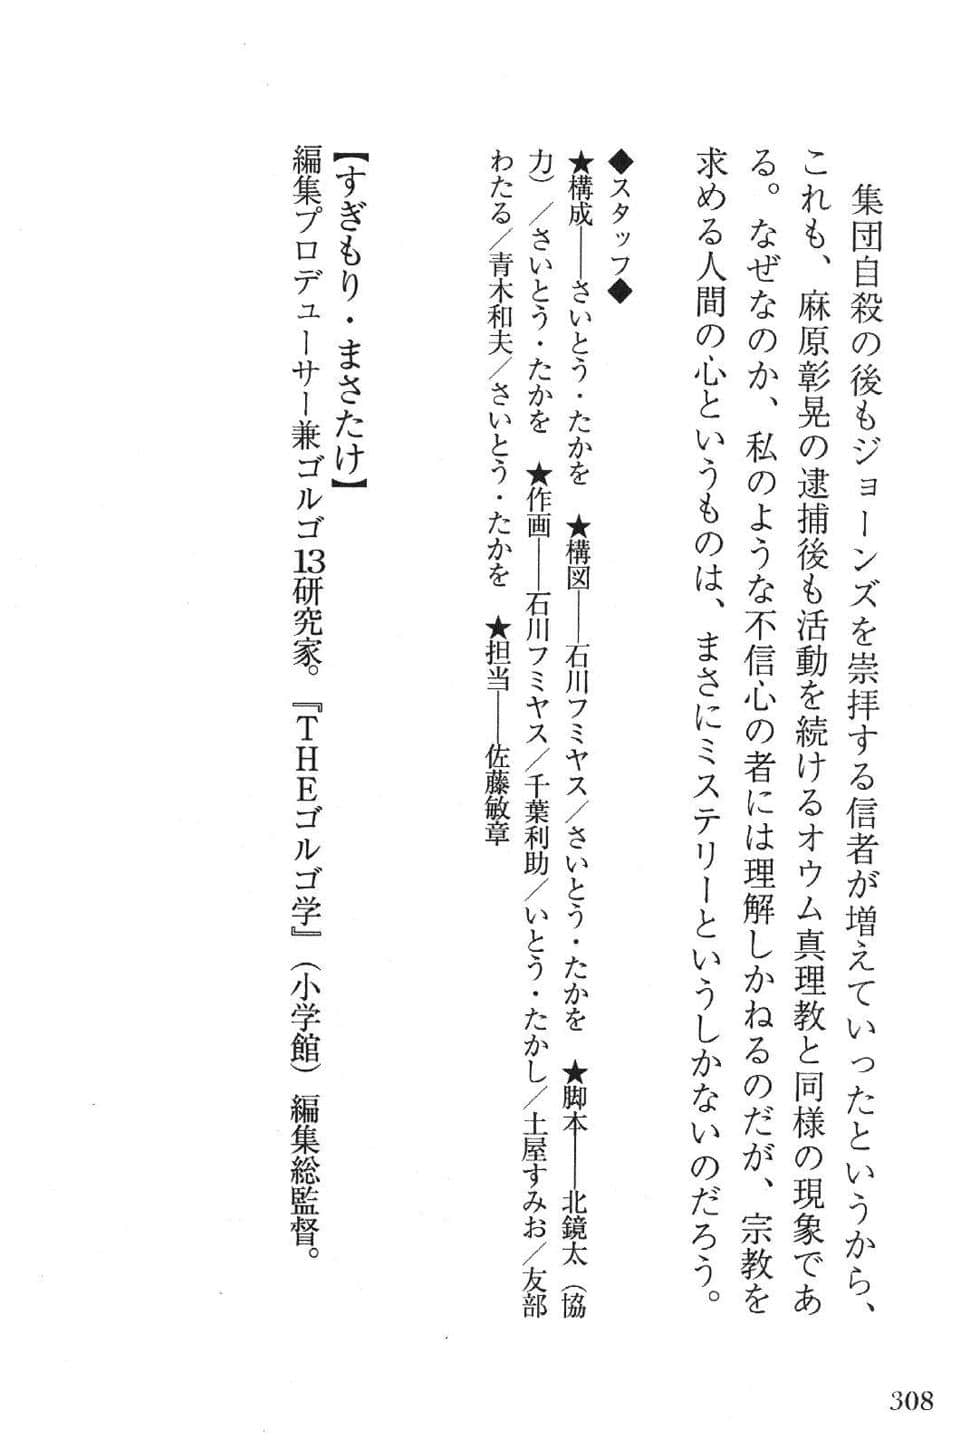 集団自殺の後もジョーンズを崇拝する信者が増えていったというから、
これも、麻原彰晃の逮捕後も活動を続けるオウム真理教と同様の現象であ
る。なぜなのか、私のような不信心の者には理解しかねるのだが、宗教を
求める人間の心というものは、まさにミステリーというしかないのだろう。
◆スタッフ◆
★構成――さいとう・たかを ★構図――石川フミヤス／さいとう・たかを ★脚本――北鏡太（協
力）／さいとう・たかを ★作画――石川フミヤス／千葉利助／いとう・たかし／土屋すみお／友部
わたる／青木和夫／さいとう・たかを ★担当――佐藤敏章
【すぎもり・まさたけ】
編集プロデューサー兼ゴルゴ13研究家。『THEゴルゴ学』（小学館）編集総監督。
308